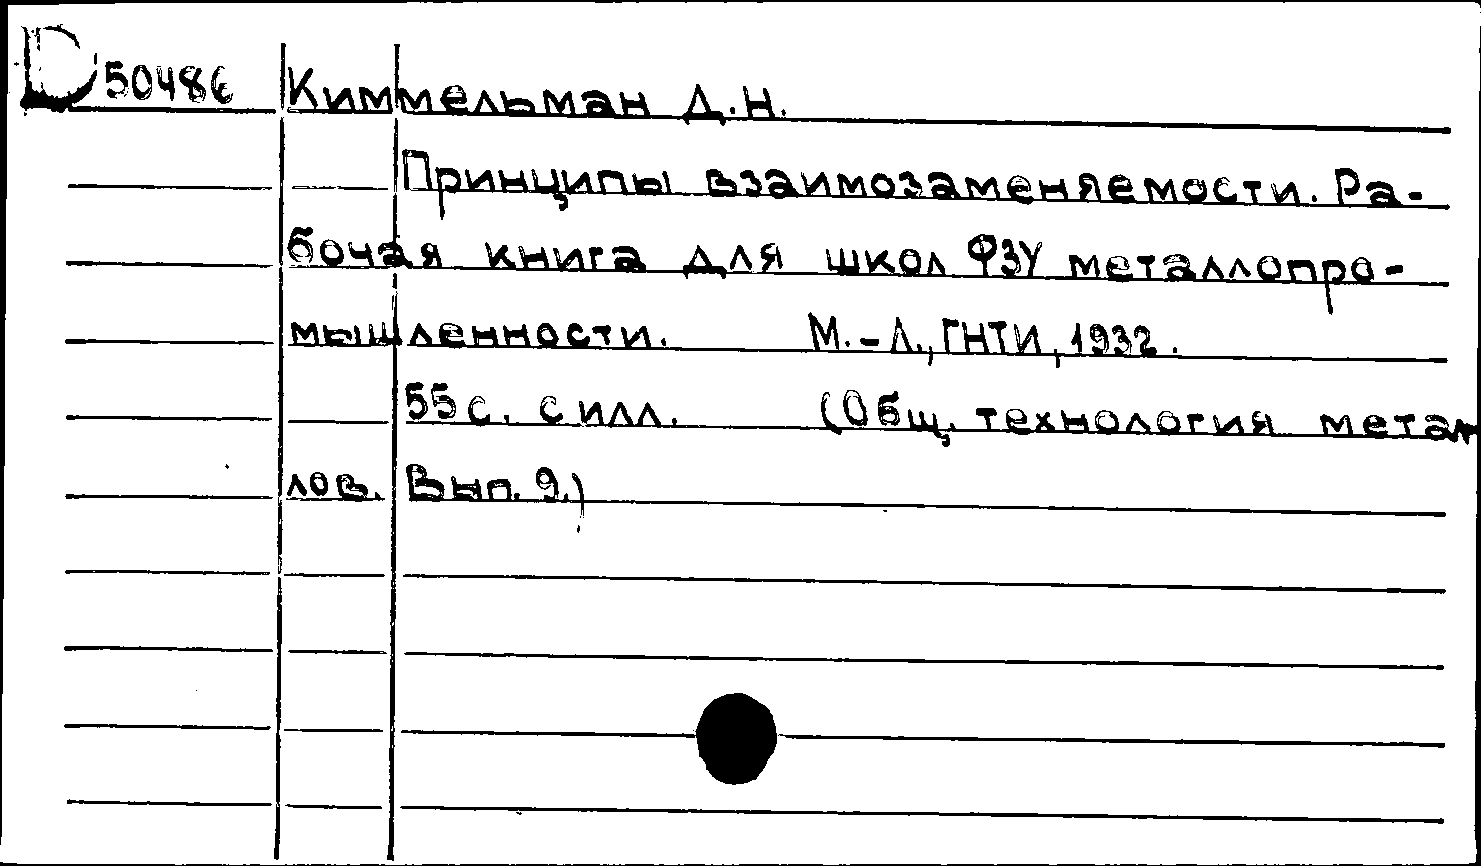 D 50486 Киммельман Д.Н.
Принципы взаимозаменяемости. Ра-
бочая книга для школ ФЗУ металлопро-
мышленности. М.-Л., ГНТИ, 1932.
55 с. с илл. (Общ. технология метал
лов. Вып. 9.)